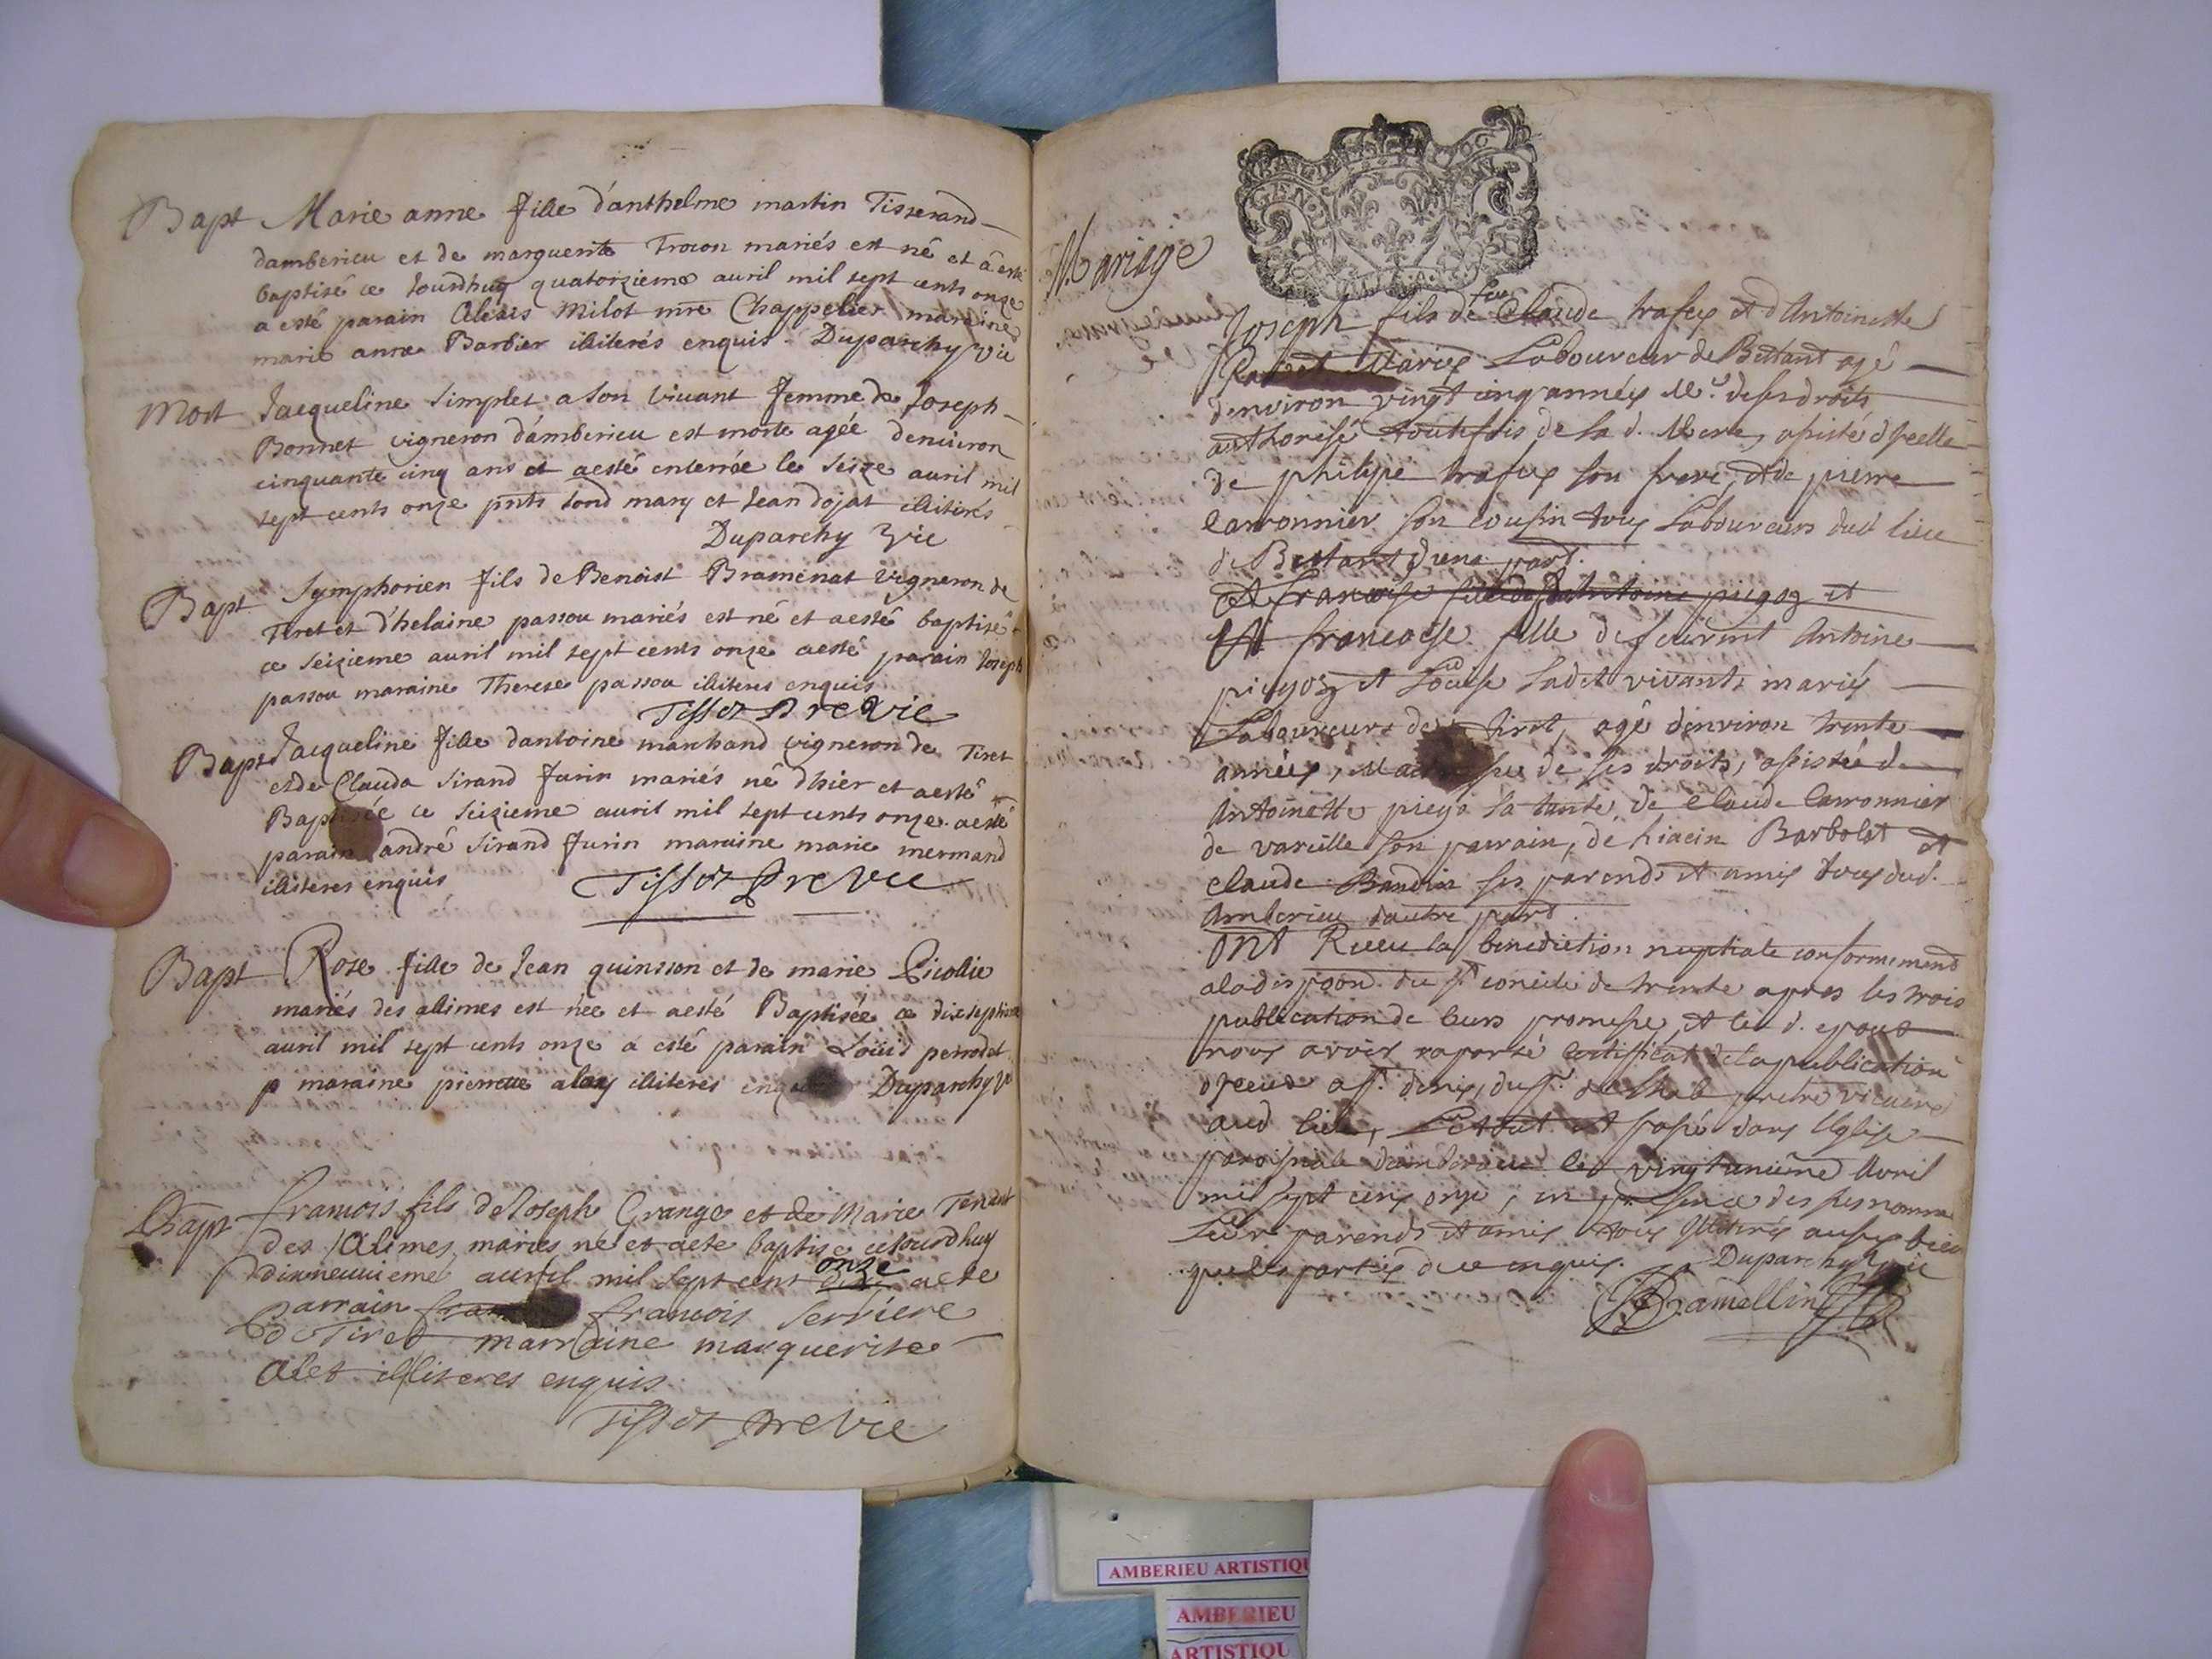 Bapt Marie anne fille d'anthelme martin Tisserand
damberieu et de marguerite Trocon mariés est né et a esté
baptisé ce Jourdhuy quatorzieme auril mil sept cents onze
a esté parain Alexis Milot mre Chappelier maraine
marie anne Barbier illiterés enquis. Duparchy vic
Mort Jacqueline Simplet a son viuant femme de Joseph
Bonnet vigneron d'amberieu est morte agée denuiron
cinquante cinq ans et a esté enterrée le seize auril mil
sept cents onze pnts sond mary et Jean dojat illiterés
Duparchy vic
Bapt Symphorien fils de Benoist Braminat vigneron de
Tiret et d'helaine passou mariés est né et aesté baptisé
ce seizieme auril mil sept cents onze aesté parain Joseph
passou maraine Therese passou illiteres enquis
Tissot pre Vic
Bapt Jacqueline fille dantoine marchand vigneron de Tiret
et de Clauda Sirand furin mariés né dhier et aesté
Baptisée ce seizieme auril mil sept cents onze aesté
parain andré Sirand furin maraine marie mermand
illiteres enquis Tissot pre Vic
Bapt Rose fille de Jean quinson et de marie Picollie
mariés des allimes est née et aesté Baptisée ce dixseptieme
auril mil sept cents onze a esté parain Louis perrodet
p maraine pierrette alay illiterés Duparchy v
Bapt francois fils de Joseph Grange et de Marie Tenant
des Alimes mariés né et aeté baptise cejourdhuy
dixneuuieme auril mil sept cent onze aeté
parrain francois Serriere
de Tiret marraine marguerite
Alet illiteres enquis
Tissot pre Vic
Mariage
Joseph fils de feu Claude trafey et d'Antoinette
Mariés Laboureur de Bettant agé
denviron vingt cinq années Me. de ses droits
authorisé toutefois de sa d. Mere, assisté d'jcelle
de philipe trafey son frere, et de pierre
Carronnier son cousin tous Laboureurs dud lieu
de Bettant d'une part.
Et francoise
Et francoise fille de feurent Antoine
piegoz et Louise Ladet vivants mariés
Laboureurs de tiret, agé d'environ trente
années, de ses droits, assistée de
Antoinette piego sa tante, de Claude Carronnier
de vareille son parrain, de hiacin Barbolat et
Claude Baudin ses parends et amis tous dud.
Amberieu dautre part.
Ont Receu la benediction nuptiale conformemend
ala disposon. du st concile de trente apres les trois
publication de leurs promesse, et led. epoux
nous avoir raporté Certifficat de la publication
d'jceux a st. denis, du sr. pretre vicaire
aud lieu, Le tout et passé dans l'Eglise
paroissiale damberieu le vingt unième Avril
mil sept cens onze, en presence des susnommé
Leur parends et amis tous Illiterés aussy bien
que les parties de ce enquis. Duparchy vic
Bramellin
AMBERIEU ARTISTIQU
AMBERIEU
ARTISTIQU